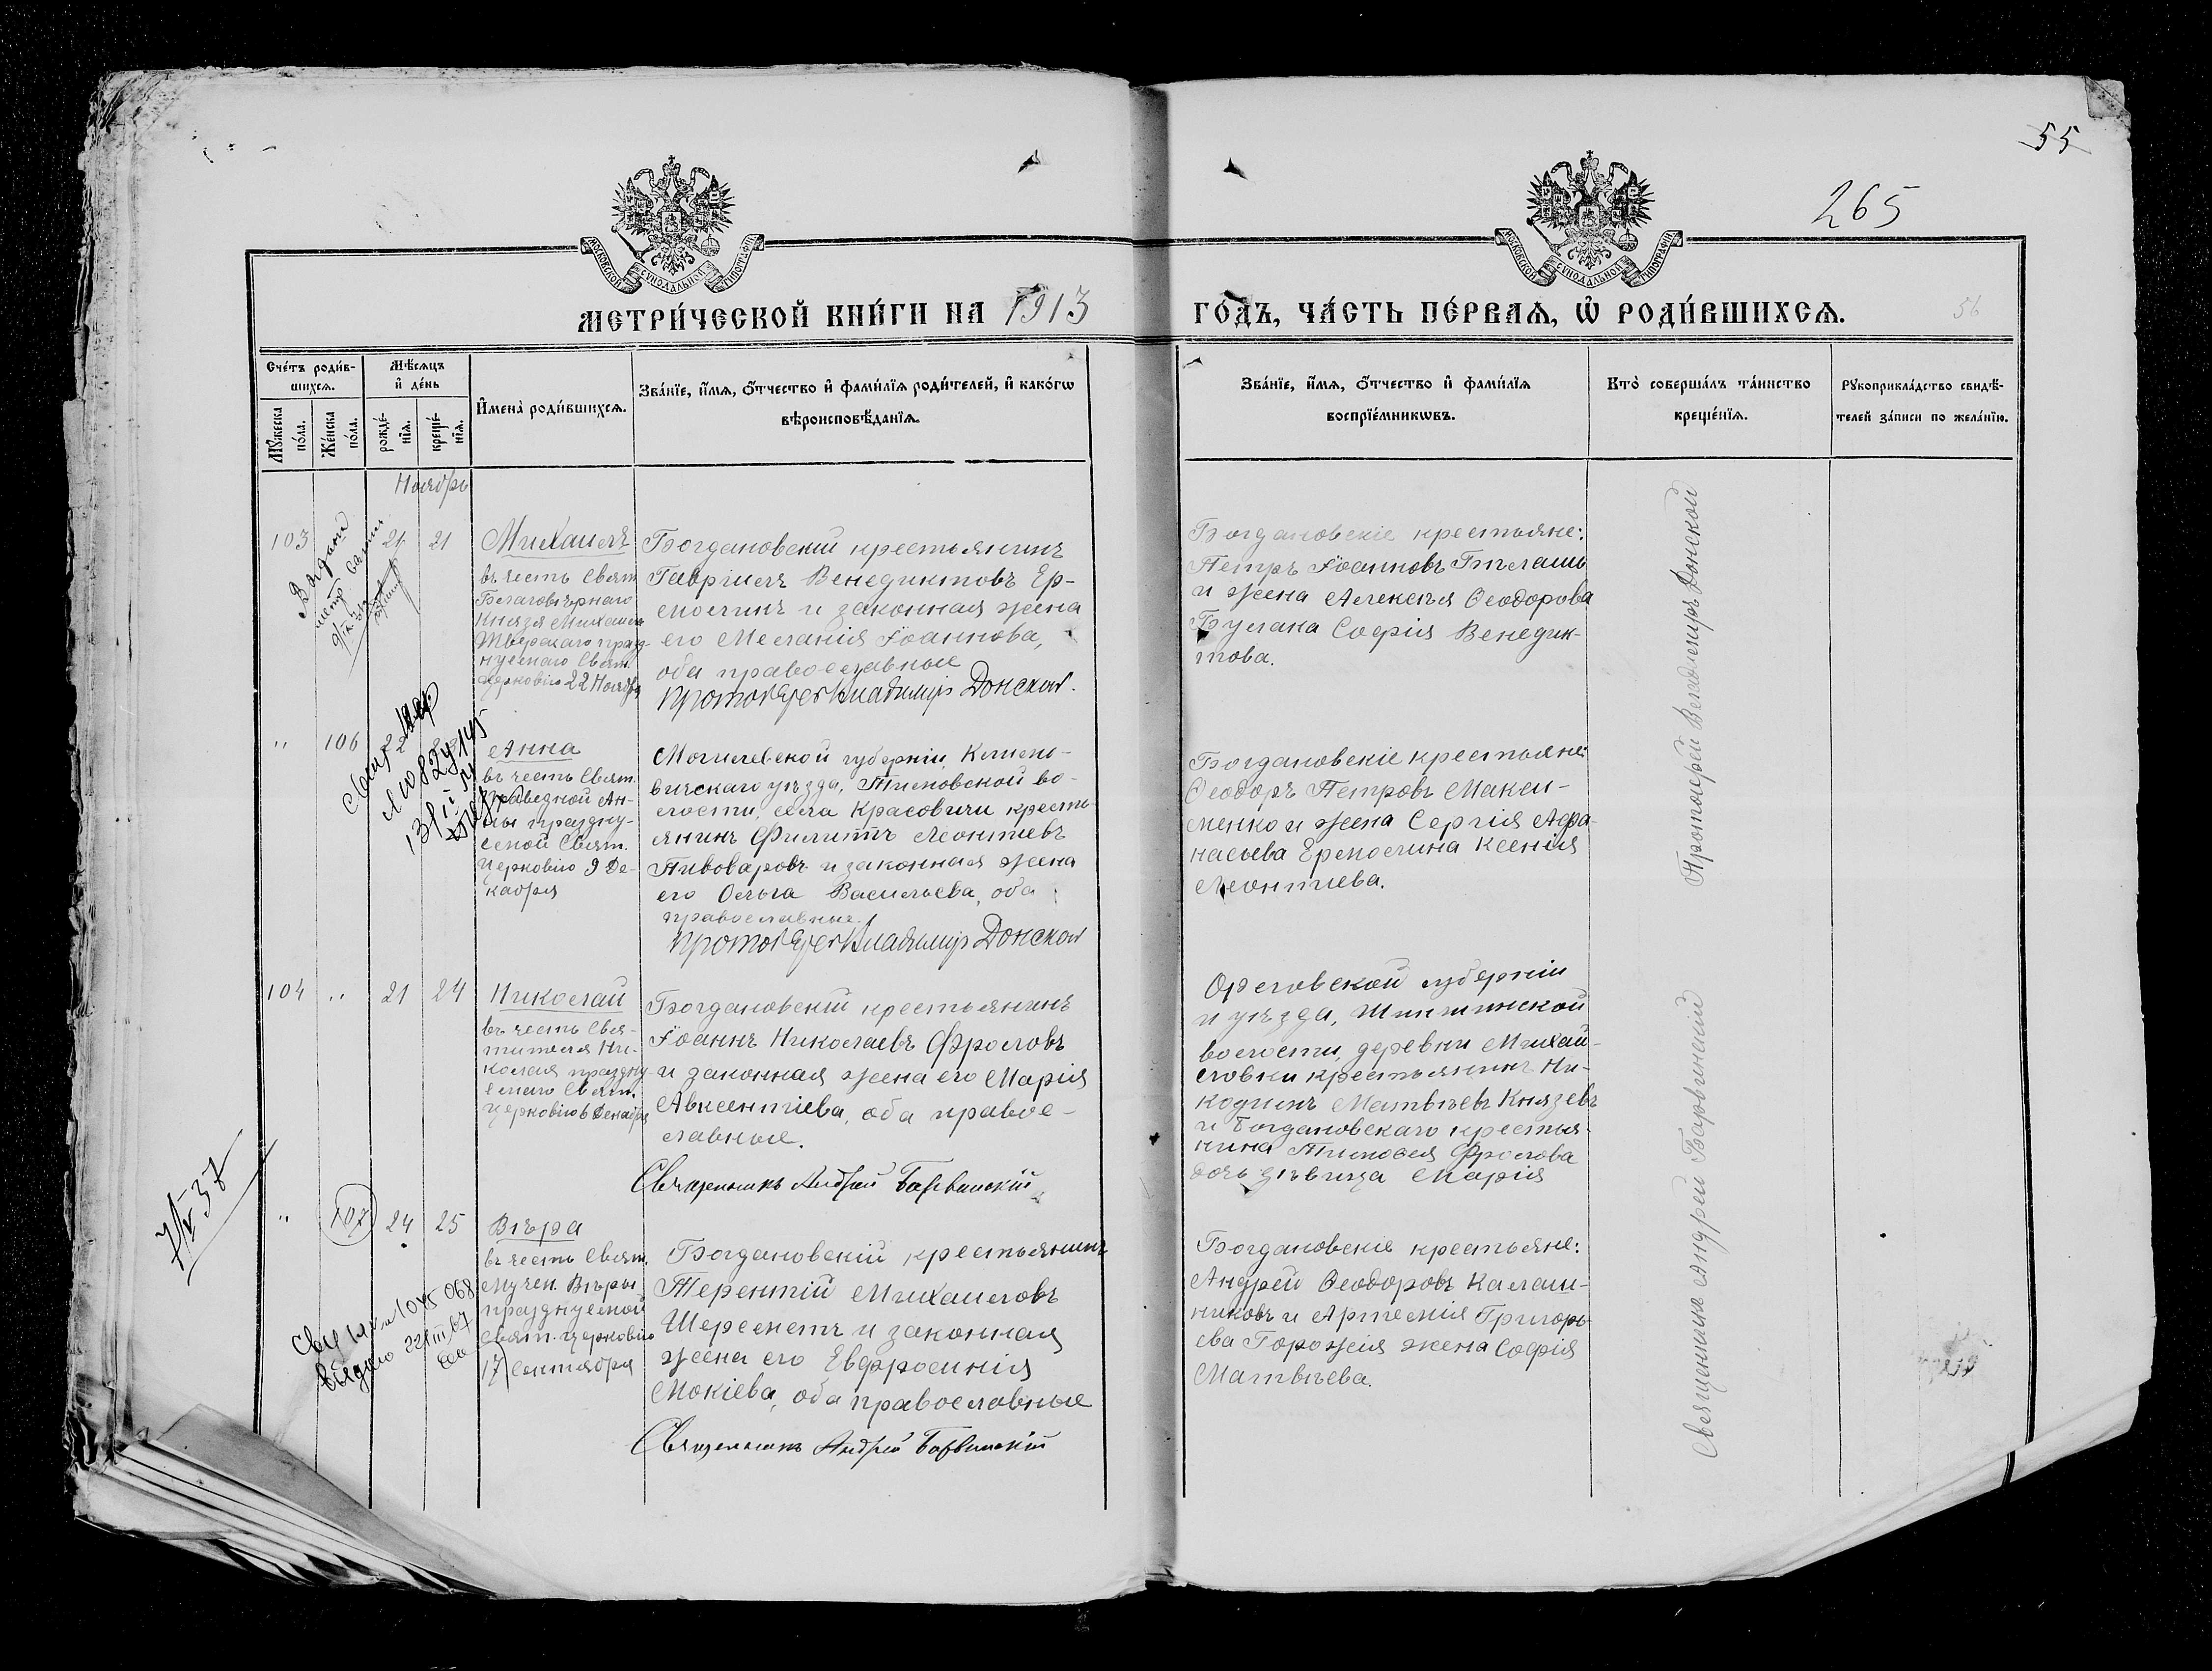 55
265
56
МОСКОВСКОЙ СѴНОДАЛЬНОЙ ТИПОГРАФІИ
МОСКОВСКОЙ СѴНОДАЛЬНОЙ ТИПОГРАФІИ
МЕТРИ́ЧЕСКОЙ КНИ́ГИ НА 1913
ГО́ДЪ, ЧА́СТЬ ПЕ́РВАѦ, Ѽ РОДИ́ВШИХСѦ.
Сче́тъ роди́в-
шихсѧ.
Мѣ́сѧцъ
и҆ де́нь
Мꙋ́жеска
по́ла.
Же́нска
по́ла.
рожде́-
нїѧ.
креще́-
нїѧ.
И҆мена̀ роди́вшихсѧ.
Зва́нїе, и҆́мѧ, ѻ҆́тчество и҆ фами́лїѧ роди́телей, и҆ како́гѡ
вѣроисповѣ́данїѧ.
Зва́нїе, и҆́мѧ, ѻ҆́тчество и҆ фами́лїѧ
воспрїе́мникѡвъ.
Кто̀ соверша́лъ та́инство
креще́нїѧ.
Рꙋкоприкла́дство свидѣ́-
телей за́писи по жела́нїю.
Ноябрь
103
21
21
Михаилъ
въ честь Свят.
Благовѣрнаго
Князя Михаила
Тверскаго празд-
нуемаго Свят.
Церковію 22 Ноября
Богдановскій крестьянинъ
Гавріилъ Венедиктовъ Ер-
молинъ и законная жена
его Меланія Іоаннова,
оба православные
Протоіерей Владиміръ Донской.
Богдановскіе крестьяне:
Петръ Іоанновъ
и жена Алексѣя Ѳеодорова
Булана Софія Венедик-
това.
Протоіерей Владиміръ Донской
"
106
Анна
въ честь Свят.
Праведной Ан-
ны праздну-
емой Свят.
Церковію 9 Де-
кабря
Могилевской губерніи, Климо-
вичскаго уѣзда, Тимоновской во-
лости, села Красовичи кресть-
янинъ Филиппъ Леонтіевъ
Пивоваровъ и законная жена
его Ольга Васильева, оба
православные.
Протоіерей Владиміръ Донской
Богдановскіе крестьяне:
Ѳеодоръ Петровъ Макси-
менко и жена Сергія Афа-
насьева Ермолина Ксенія
Леонтіева.
104
"
21
24
Николай
въ честь Свя-
тителя Ни-
колая праздну-
емаго Свят.
Церковію 6 Декабря
Богдановскій крестьянинъ
Іоаннъ Николаевъ Фроловъ
и законная жена его Марія
Авксентіева, оба правос-
лавные.
Священникъ Андрей Барвинскій
Орловской губерніи
и уѣзда,
волости, деревни Михай-
ловки крестьянинъ Ни-
кодимъ Матвѣевъ Князевъ
и Богдановскаго крестья-
нина Тимоѳея Фролова
дочь дѣвица Марія
Священникъ Андрей Барвинскій
7/V 37
"
107
24
25
Вѣра
въ честь Свят.
мучен. Вѣры
празднуемой
Свят. Церковію
17 Сентября
Богдановскій крестьянинъ
Терентій Михаиловъ
Шереметъ и законная
жена его Евфросинія
Мокіева, оба православные
Священникъ Андрей Барвинскій
Богдановскіе крестьяне:
Андрей Ѳеодоровъ Калаш-
никовъ и Артемія Григорь-
ева Горожея жена Софія
Матвѣева.